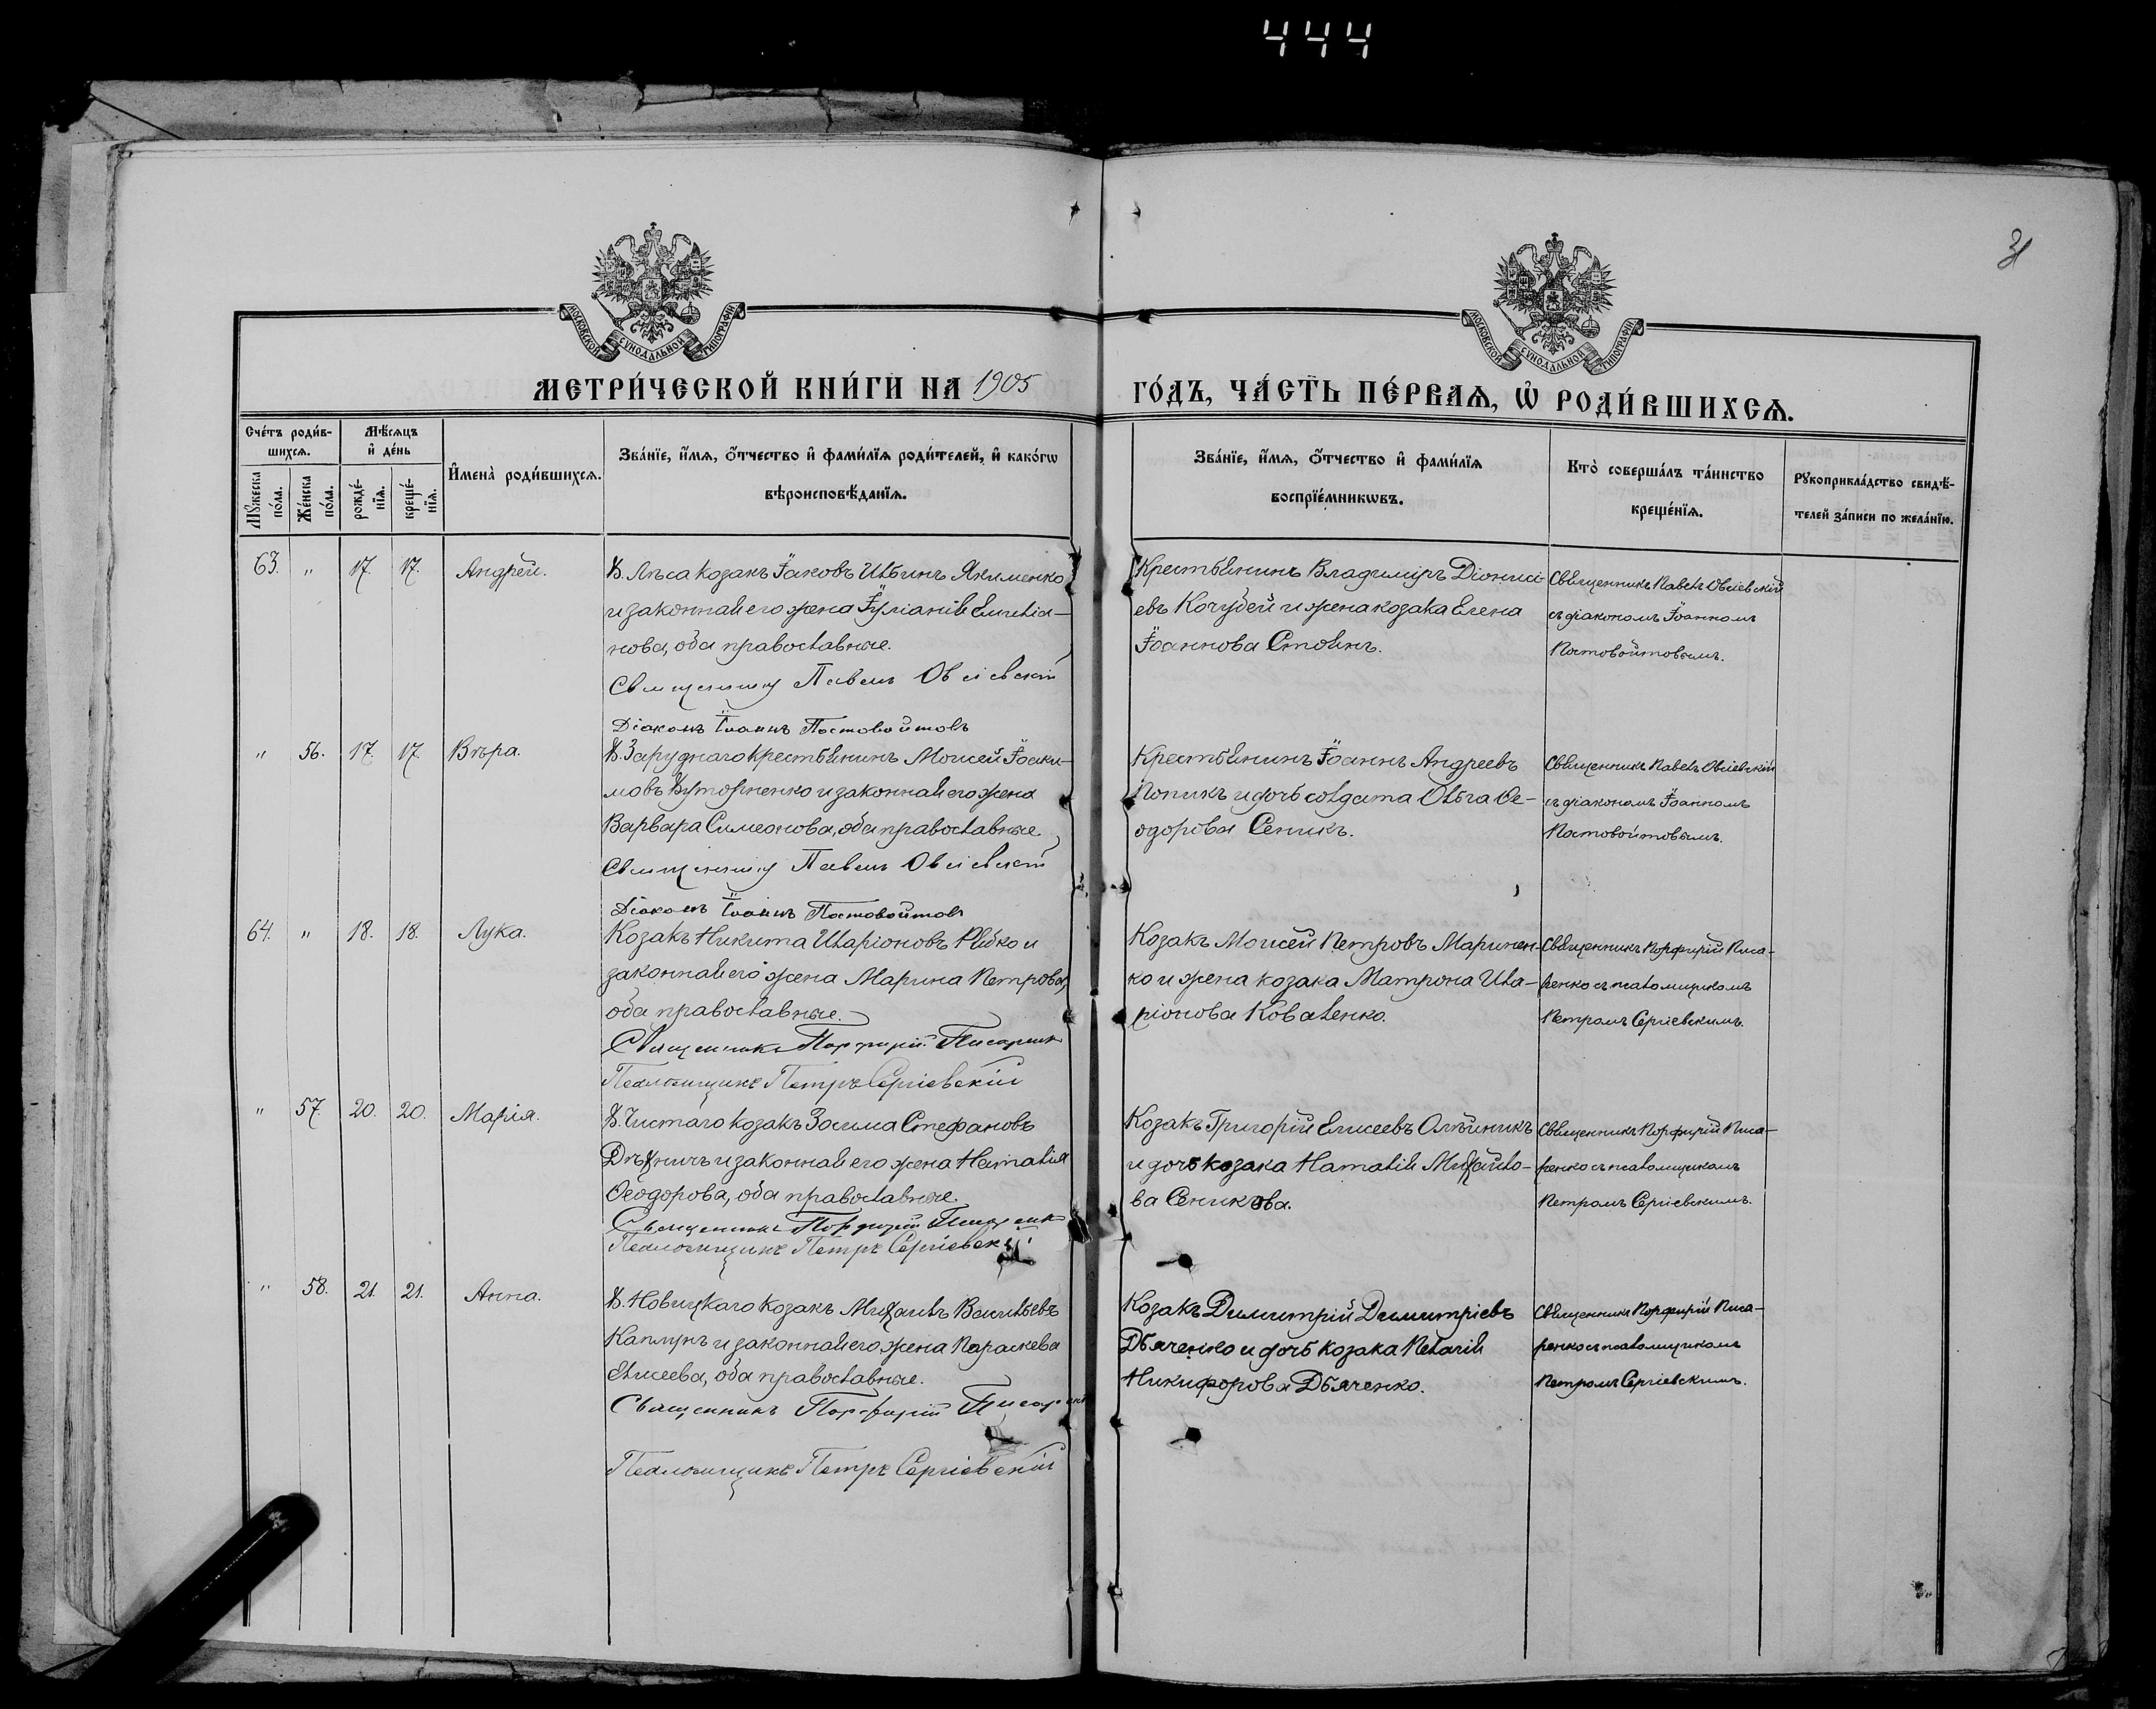 444
31
МОСКОВСКОЙ СѴНОДАЛЬНОЙ ТИПОГРАФІИ
МОСКОВСКОЙ СѴНОДАЛЬНОЙ ТИПОГРАФІИ
МЕТРИ́ЧЕСКОЙ КНИ́ГИ НА 1905 ГО́ДЪ, ЧА́СТЬ ПЕ́РВАЯ, Ѡ҆ РОДИ́ВШИХСЯ.
Сче́тъ роди́в-
шихся.
Мѣ́сяцъ
и҆ де́нь
Мꙋ́жеска
по́ла.
Же́нска
по́ла.
рожде́-
нїѧ.
креще́-
нїѧ.
И҆мена̀ роди́вшихсѧ.
Зва́нїе, и҆́мѧ, ѻ҆́тчество и҆ фами́лїѧ роди́телей, и҆ како́гѡ
вѣроисповѣ́данїѧ.
Зва́нїе, и҆́мѧ, ѻ҆́тчество и҆ фами́лїѧ
воспрїе́мникѡвъ.
Кто̀ соверша́лъ та́инство
креще́нїѧ.
Рꙋкоприкла́дство свидѣ́-
телей за́писи по жела́нїю.
63. " 17. 17. Андрей.
Х. Лѣса козакъ Іаковъ Ильинъ Якименко
и законная его жена Іуліанія Емилiа-
нова, оба православные.
Священникъ Павелъ Овсіевскій
Діаконъ Іоаннъ Постовойтовъ
Крестьянинъ Владиміръ Діонисі-
евъ Кочубей и жена козака Елена
Іоаннова Стоянъ.
Священникъ Павелъ Овсіевскій
съ діакономъ Іоанномъ
Постовойтовымъ.
" 56. 17. 17. Вѣра.
Х. Заруднаго крестьянинъ Моисей Іоаки-
мовъ и законная его жена
Варвара Симеонова, оба православные.
Священникъ Павелъ Овсіевскій
Діаконъ Іоаннъ Постовойтовъ
Крестьянинъ Іоаннъ Андреевъ
Попикъ и дочь солдата Ольга Ѳе-
одорова Сеникъ.
Священникъ Павелъ Овсіевскій
съ діакономъ Іоанномъ
Постовойтовымъ.
64. " 18. 18. Лука.
Козакъ Никита Иларіоновъ и
законная его жена Марина Петрова,
оба православные.
Священникъ Порфирій Писаренко
Псаломщикъ Петръ Сергіевскій
Козакъ Моисей Петровъ Маринен-
ко и жена козака Матрона Ила-
ріонова Коваленко.
Священникъ Порфирій Писа-
ренко съ псаломщикомъ
Петромъ Сергіевскимъ.
" 57. 20. 20. Марія.
Х. Чистаго козакъ Зосима Стефановъ
и законная его жена Наталія
Ѳеодорова, оба православные.
Священникъ Порфирій Писаренко
Псаломщикъ Петръ Сергіевскій
Козакъ Григорій Елисеевъ Олѣйникъ
и дочь козака Наталія Михайло-
ва Сеникова.
Священникъ Порфирій Писа-
ренко съ псаломщикомъ
Петромъ Сергіевскимъ.
" 58. 21. 21. Анна.
Х. Новицкаго козакъ Михаилъ Васильевъ
Каплунъ и законная его жена Параскева
Елисеева, оба православные.
Священникъ Порфирій Писаренко
Псаломщикъ Петръ Сергіевскій
Козакъ Димитрій Димитріевъ
Дьяченко и дочь козака Пелагія
Никифорова Дьяченко.
Священникъ Порфирій Писа-
ренко съ псаломщикомъ
Петромъ Сергіевскимъ.